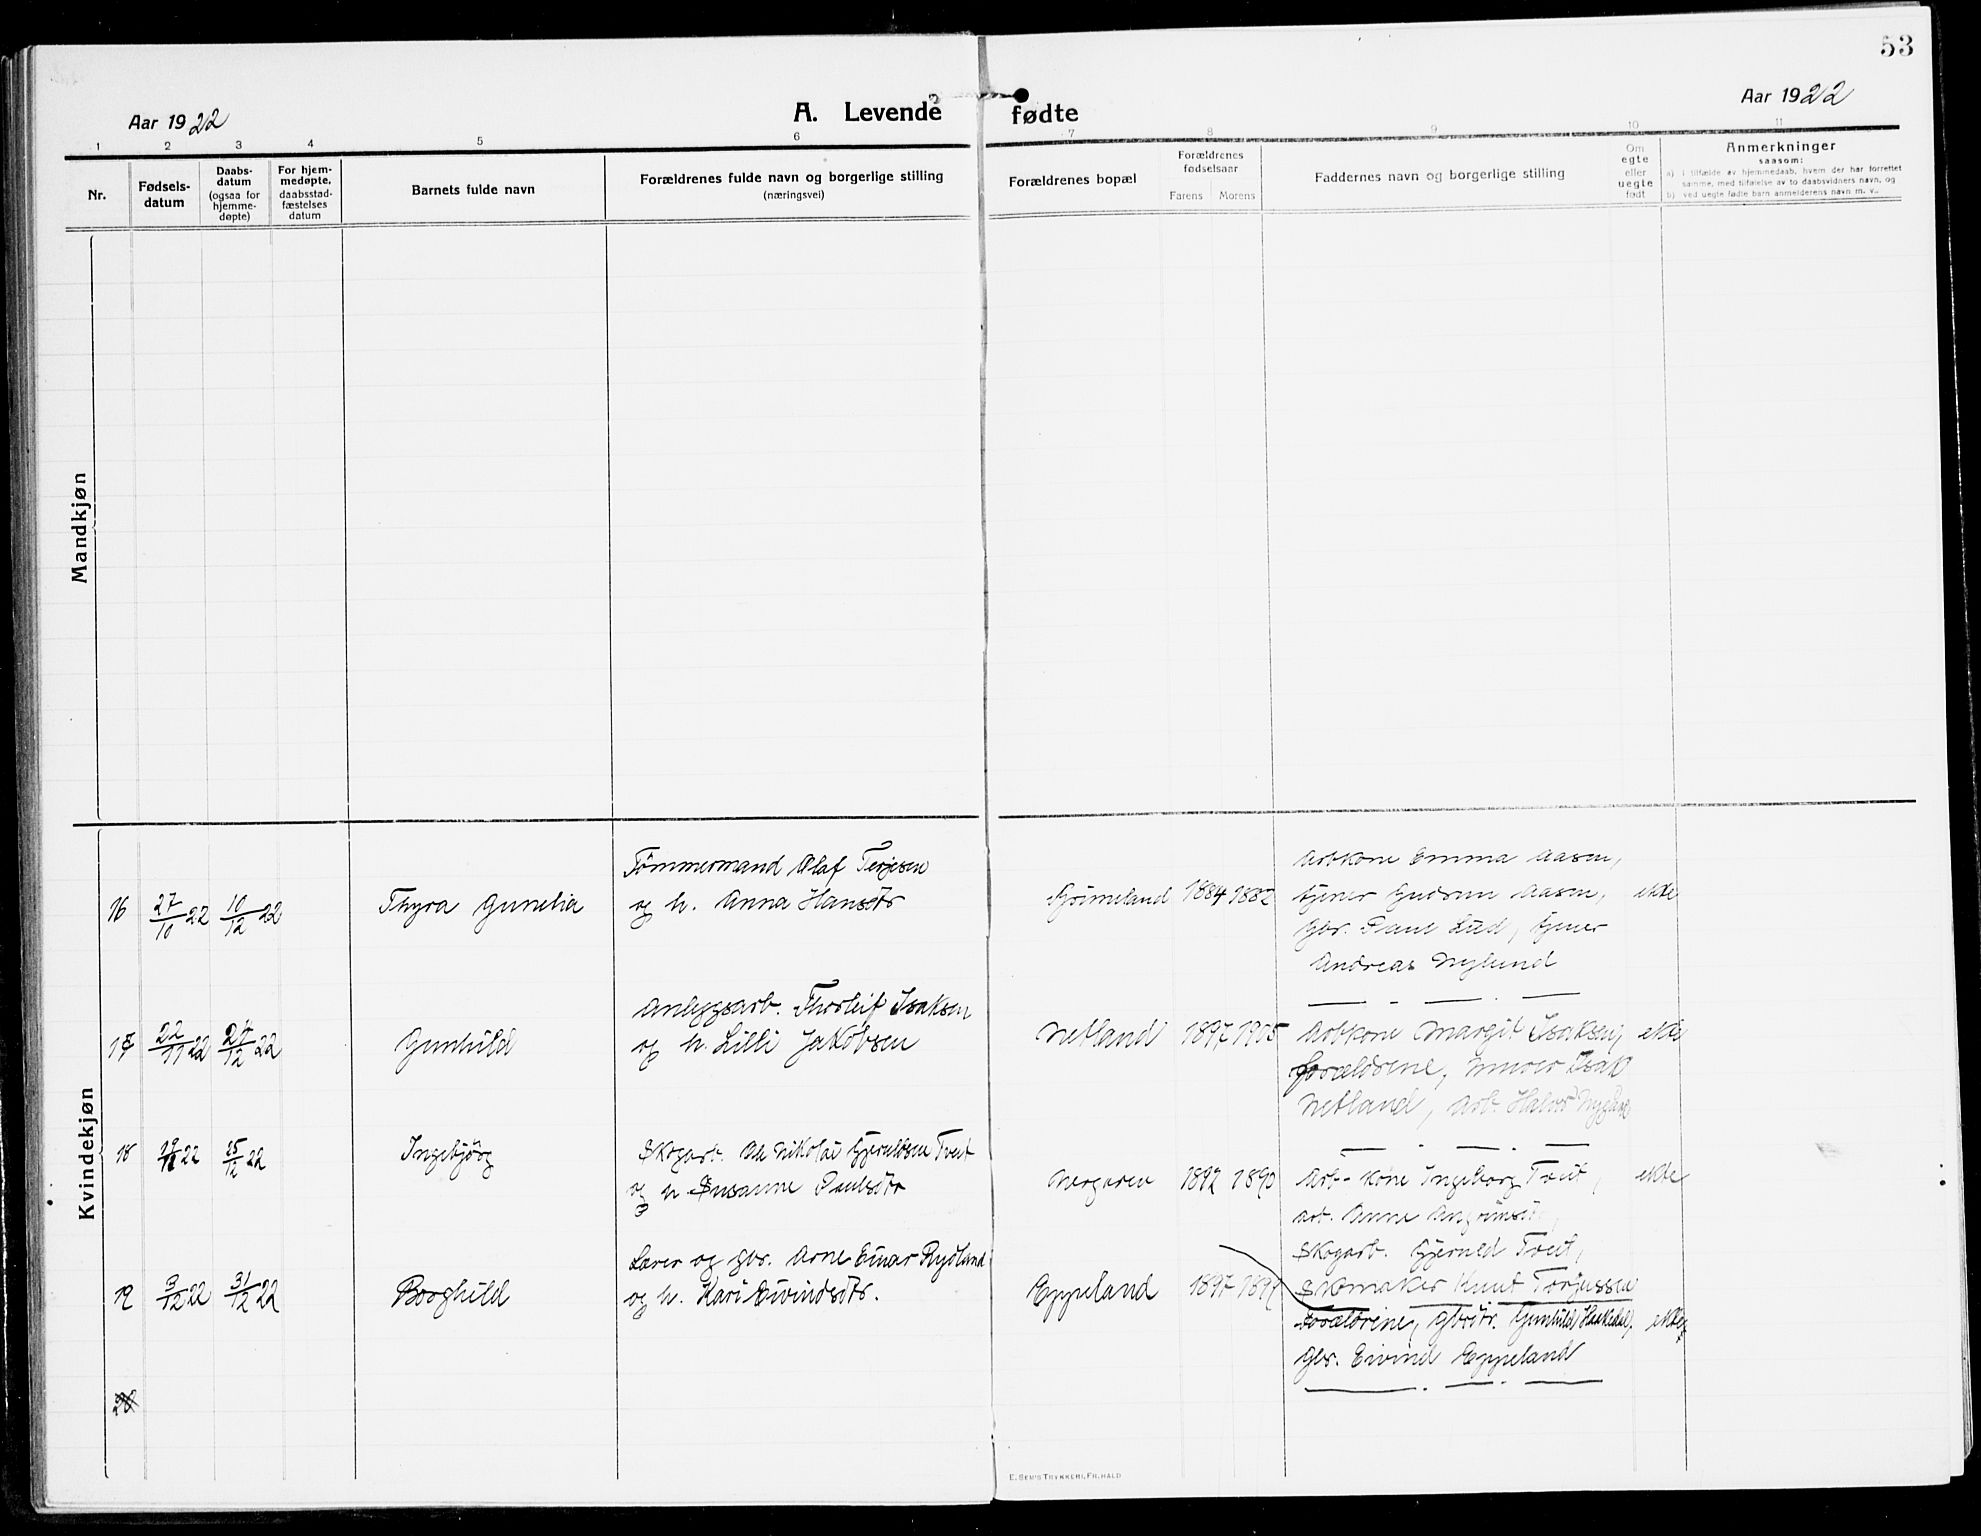 53
Aar 1922
A. Levende fødte
Aar 1922
1 2 3 4 5 6 7 8 9 10 11
Nr.
Fødsels-
datum
Daabs-
datum
(ogsaa for
hjemme-
døpte)
For hjem-
medøpte,
daabsstad-
fæstelses
datum
Barnets fulde navn
Forældrenes fulde navn og borgerlige stilling
(næringsvei)
Forældrenes bopæl
Forældrenes
fødselsaar
Farens Morens
Faddernes navn og borgerlige stilling
Om
egte
eller
uegte
født
Anmerkninger
saasom:
a) i tilfælde av hjemmedaab, hvem der har forrettet
samme, med tilføielse av to daabsvidners navn, og
b) ved uegte fødte barn anmelderens navn m. v..
Mandkjøn
Kvindekjøn
16 27/10 22 10/12 22 Thyra Gunelia
Tömmermand Olaf Terjesen
og h. Anna Hansdtr
1884 1882
Arbkone Emma Aasen,
tjener Gudrun Aasen, ekte
Gbr. Lud, tjener
Andreas Nylund
17 22/11 22 24/12 22 Gunhild
Anleggsarb. Thorleif Isaksen
og h. Lilli Jakobsen
Netland 1897 1905
Arbkone Margit Isaksen, ekte
forældrene, murer Isak
Netland, Arb. Halvor
18 22 25/12 22 Ingebjörg
Skogarb. Ole Nikolai Tveit
og h Susanne Paulsdtr
1892 1890
Arb.-kone Ingeborg Tveit, ekte
arb. Anne
Skogarb. Tveit,
Skomaker Knut Torjussen
19 9/12 22 31/12 22 Borghild
Lærer og gbr. Arne Einar Rysland
og h. Kari Eivindsdtr.
Eppeland 1897
Forældrene, gbrdtr. Gunhild Haakedal, ekte
Gbr. Eivind Eppeland
20
E. SEM'S TRYKKERI, FR.HALD